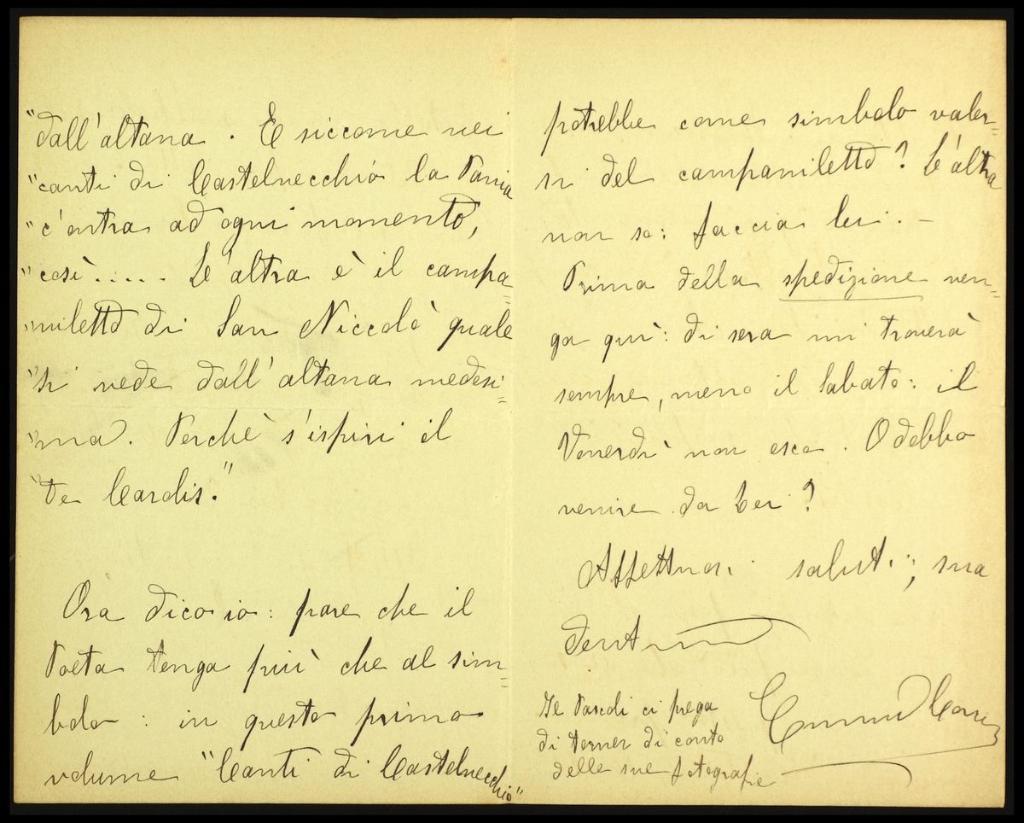 "dall'altana. E siccome nei
"canti di Castelvecchio la Pania
"c'entra ad ogni momento,
"così..... L'altra è il campa=
"niletto di San Niccolò quale
"si vede dall'altana medesi=
"ma. Perchè s'ispiri il
"De Carolis."
Ora dico io: pare che il
Poeta tenga più che al sim=
bolo: in questo primo
volume "Canti di Castelvecchio"
potrebbe come simbolo valer=
si del campaniletto? L'altra
non so: faccia lei. -
Prima della spedizione ven=
ga quì: di sera mi troverà
sempre, meno il Sabato: il
Venerdì non esco. O debbo
venire da Lei?
Affettuosi saluti; sua
Il Pascoli ci prega
di tener di conto
delle sue fotografie